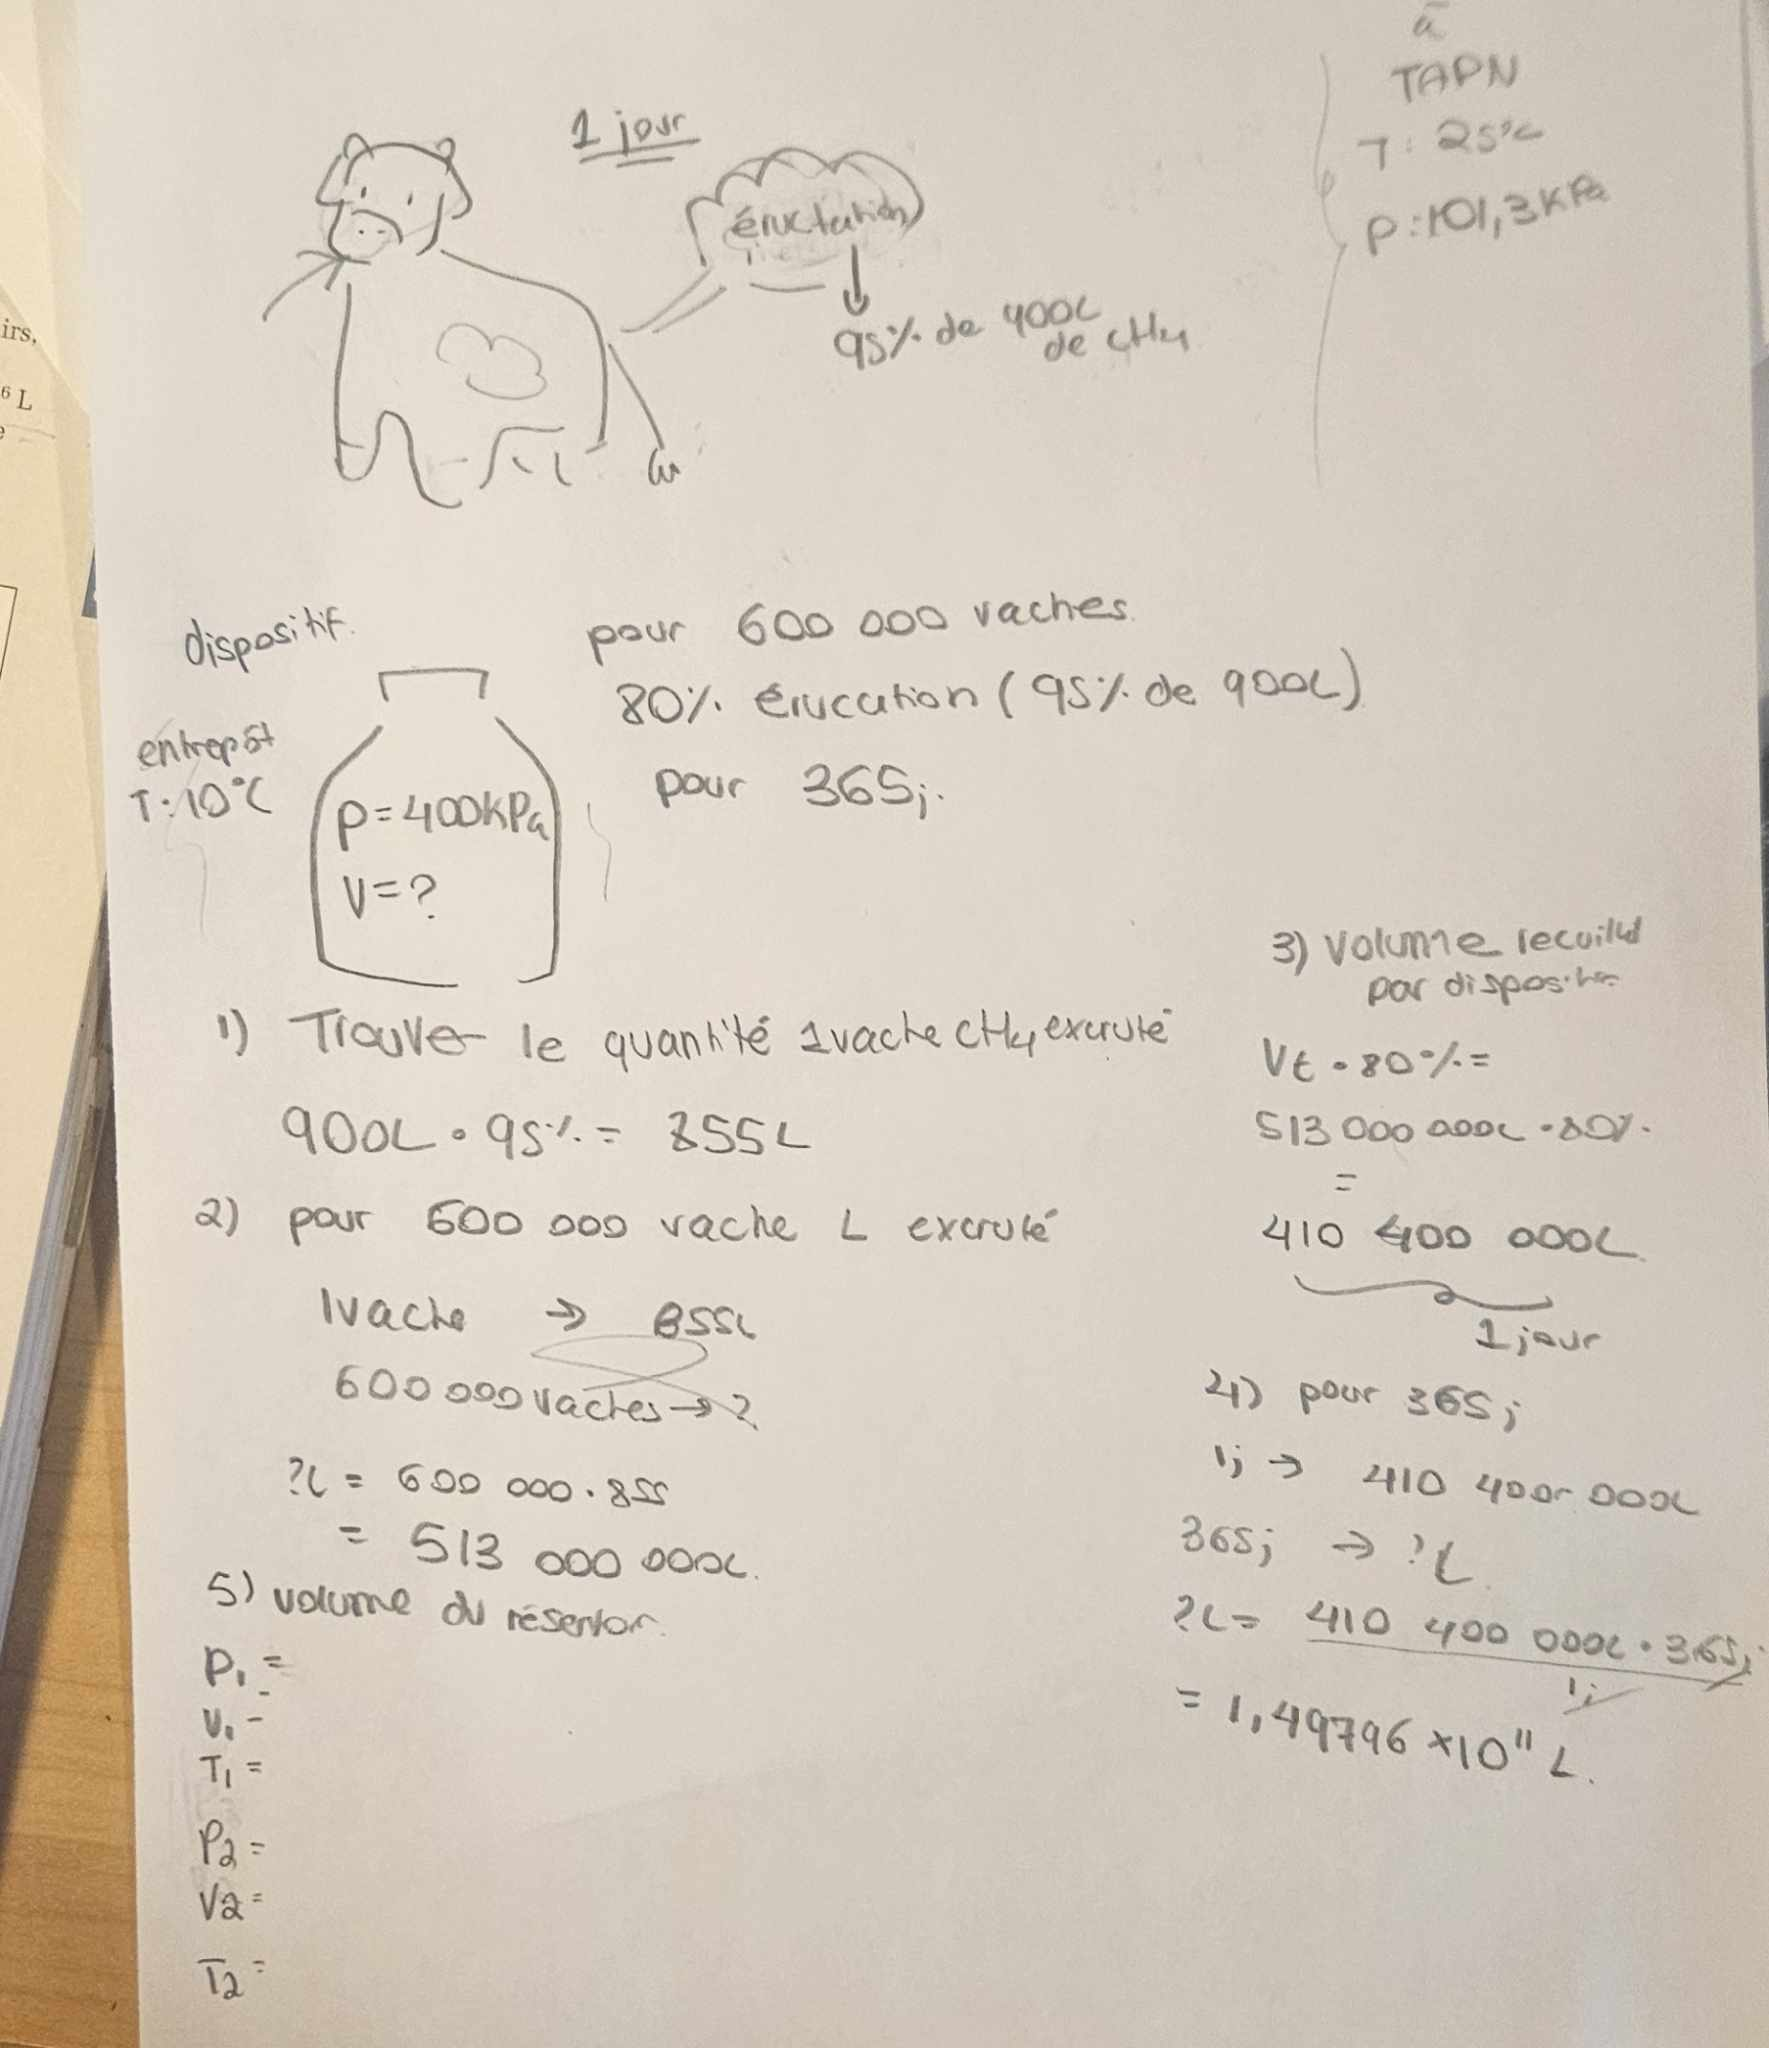 à
TAPN
T: 25°C
P: 101,3 KPa
1 jour
éructation
95% de 400L
de CH4
irs,
6 L
e
dispositif.
entrepôt
T: 10°C
P = 400KPa
V = ?
pour 600 000 vaches.
80% érucation (95% de 900L)
pour 365j.
1) Trouver le quantité 1vache CH4 excruté
900L • 95% = 855L
2) pour 600 000 vache L excruté
1vache → 855L
600 000 vaches → ?
?L = 600 000 • 855
= 513 000 000L.
3) Volume recuillit
par dispositif
Vt • 80% =
513 000 000L • 80%
=
410 400 000L
1 jour
4) pour 365j
1j → 410 400 000L
365j → ?L
?L = 410 400 000L • 365j
1j
= 1,49796 x 10^11 L.
5) volume du réservoir.
P1 =
V1 =
T1 =
P2 =
V2 =
T2 =